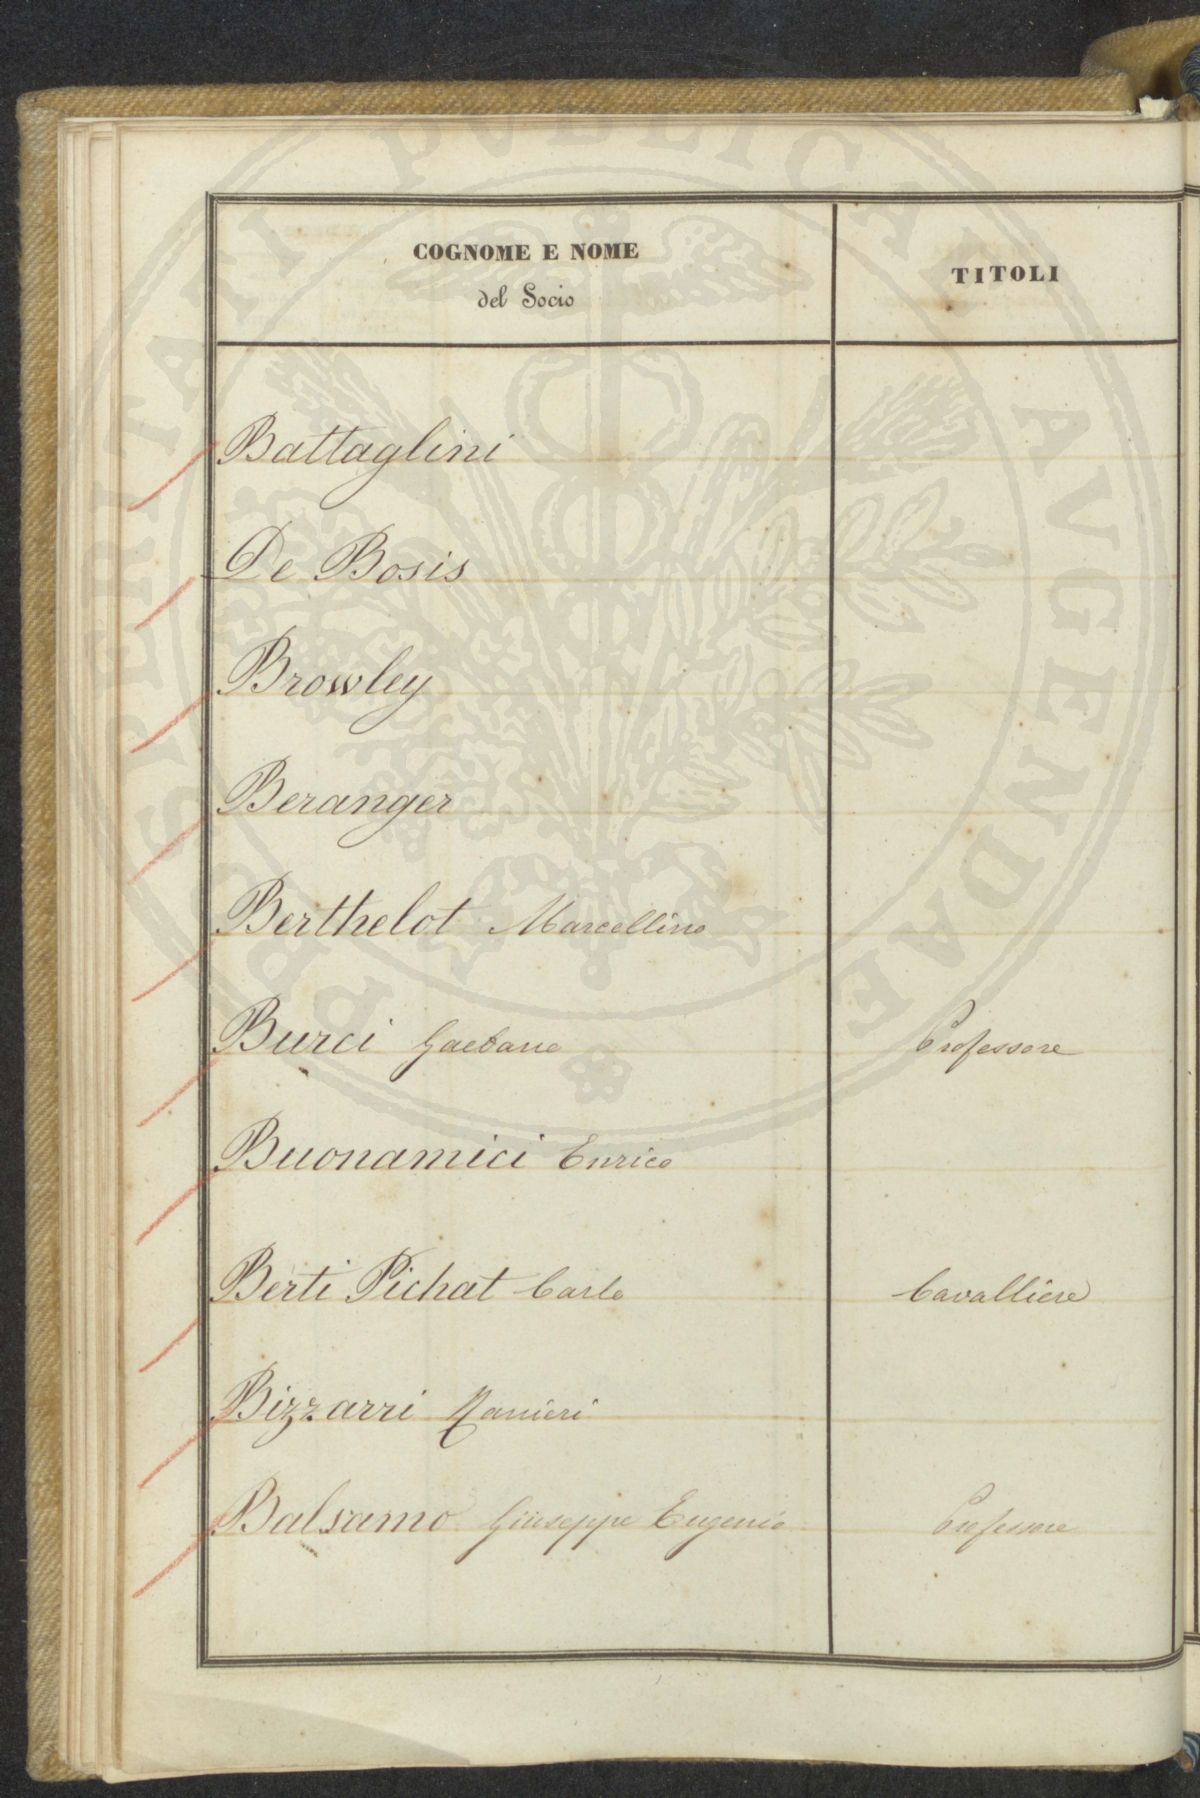 COGNOME E NOME
del Socio
TITOLI
Battaglini
De Bosis
Browley
Beranger
Berthelot Marcellino
Burci Gaetano Professore
Buonamici Enrico
Berti Pichat Carlo Cavalliere
Bizzarri Ranieri
Balsamo Giuseppe Eugenio Professore
PROSPERITATI PVBLICAE AVGENDAE